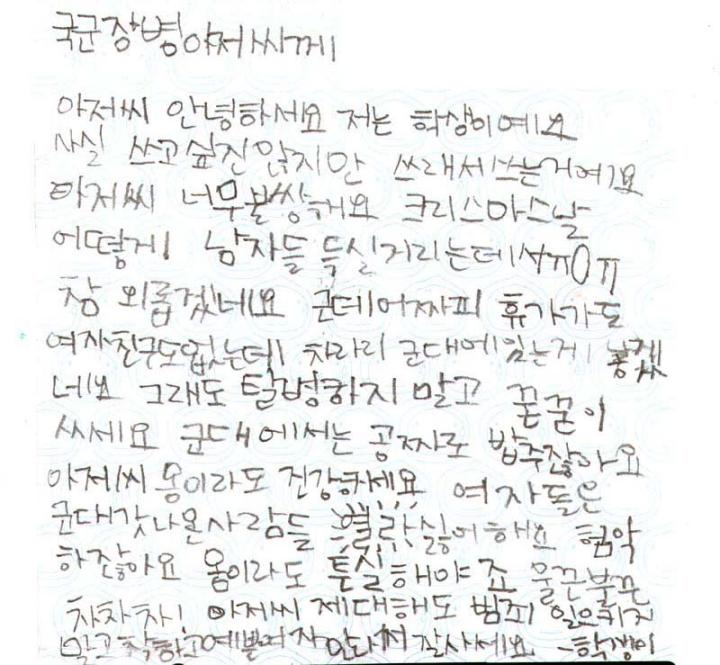 국군장병아저씨께
아저씨 안녕하세요 저는 학생이에요
사실 쓰고싶진 않지만 쓰래서쓰는거에요
아저씨 너무불쌍해요 크리스마스날
어떻게 남자들 득실거리는데서ㅠ0ㅠ
참 외롭겠네요 군데어짜피 휴가가도
여자친구도없는데 차라리 군대에있는게 낳겠
네요 그래도 탈병하지 말고 꾿꾿이
싸세요 군대에서는 공짜로 밥주잖아요
아저씨 몸이라도 건강하세요 여자들은
군대갓나온사람들 열라싫어해요 험악
하잖아요 몸이라도 튼실해야죠 물끈불끈
차차차! 아저씨 제대해도 범죄 일으키지
말고착하고예쁜여자만나서 잘사세요 -학생이